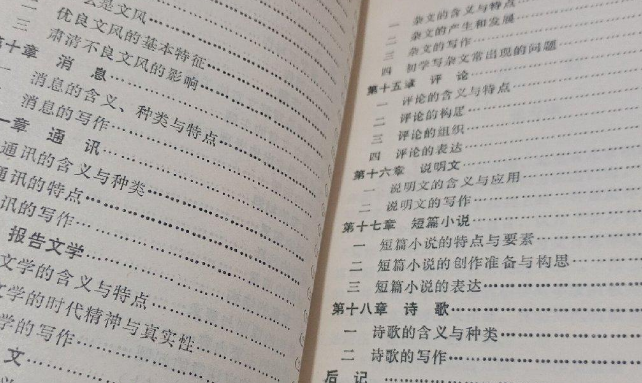 么是文风
二 优良文风的基本特征
三 肃清不良文风的影响
第十章 消 息
消息的含义、种类与特点
消息的写作
一章 通 讯
通讯的含义与种类
通讯的特点
讯的写作
报告文学
文学的含义与特点
文学的时代精神与真实性
学的写作
文
一 杂文的含义与特点
二 杂文的产生和发展
三 杂文的写作
四 初学写杂文常出现的问题
第十五章 评 论
一 评论的含义与特点
二 评论的构思
三 评论的组织
四 评论的表达
第十六章 说明文
一 说明文的含义与应用
二 说明文的写作
第十七章 短篇小说
一 短篇小说的特点与要素
二 短篇小说的创作准备与构思
三 短篇小说的表达
第十八章 诗 歌
一 诗歌的含义与种类
二 诗歌的写作
后 记